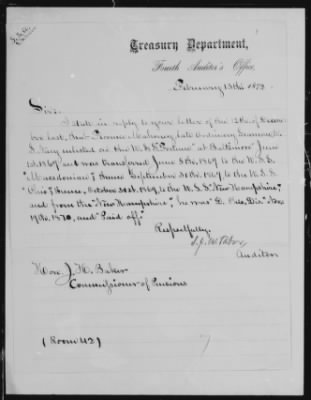 Treasury Department,
Fourth Auditor's Office,
February 13th 1873.
Sir:
I state in reply to your letter of the 12th of Decem-
ber last, that Mahoney, late Ordinary Seaman U.
S. Navy enlisted on the U.S.S. at Baltimore June
1st 1869 and was transferred June 8th 1869 to the U.S.S.
"Macedonian", thence September 30th 1869 to the U.S.S.
thence, October 31st 1869, to the U.S.S. "New Hampshire,"
and from the "New Hampshire," he was
19th 1870, and "Paid off."
Respectfully,
Auditor
Hon. J. H. Baker
Commissioner of Pensions
(Room 42)
7